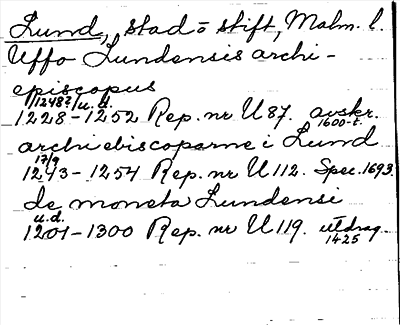 Lund, stad o stift, Malm. l.
Uffo Lundensis archi-
episcopus
/1248?/u.d.
1228-1252 Rep. nr U 87. avskr. 1600-t.
archiebiscoparne i Lund
17/9
1243-1254 Rep. nr U 112. Spec. 1693
de moneta Lundensi
u.d.
1201-1300 Rep. nr U 119. utdrag 1425